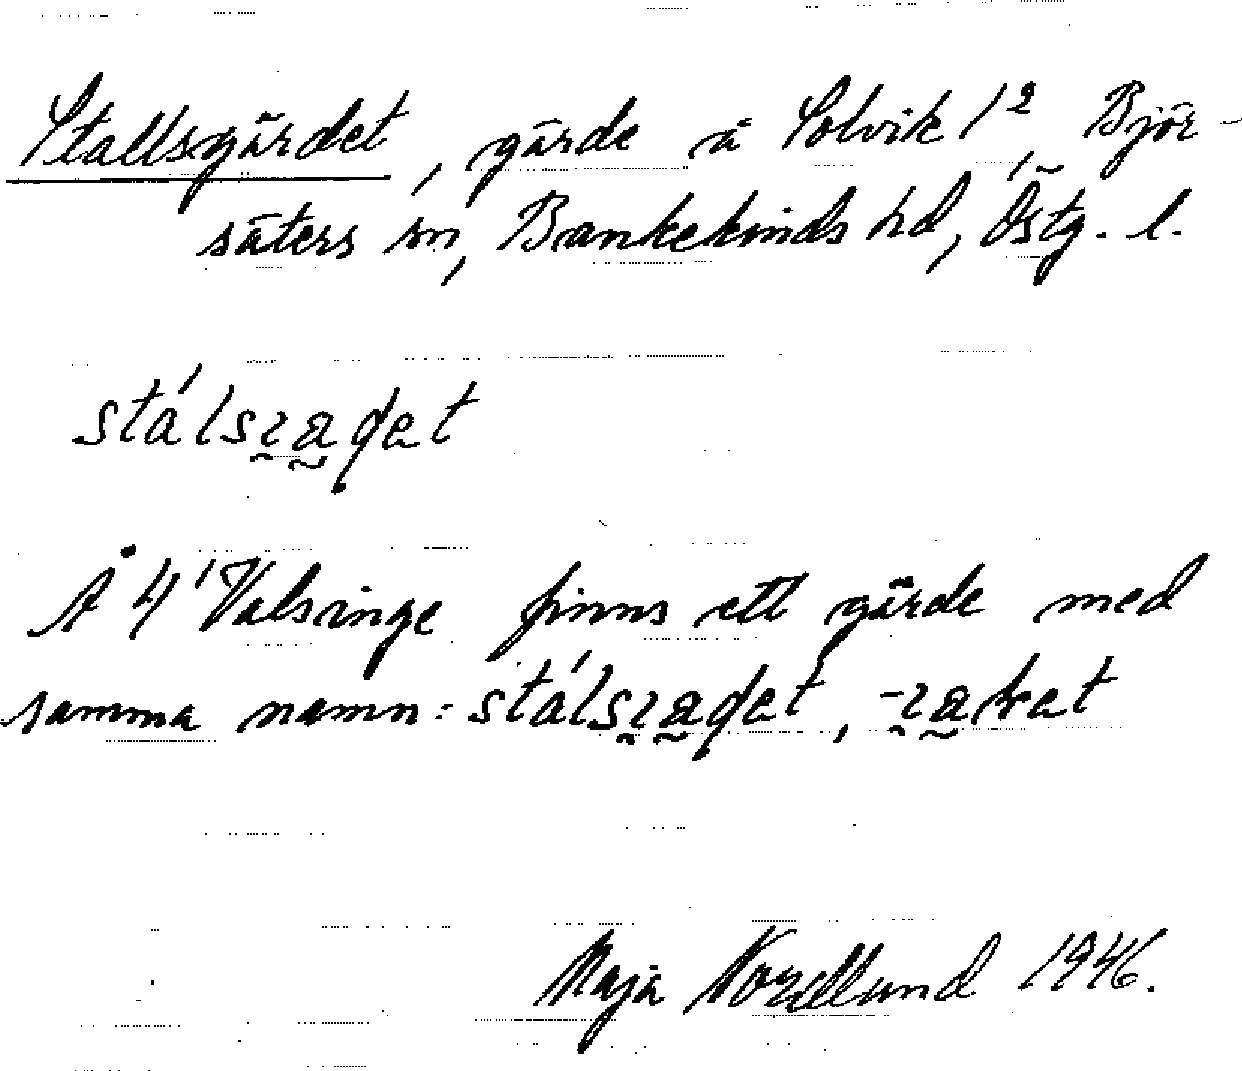 Stallsgärdet, gärde å Solvik 1² Björ-
säters sn, Bankekinds hd, Östg. l.
Å 4¹ Valsinge finns ett gärde med
samma namn:
Maja Nordlund 1946.